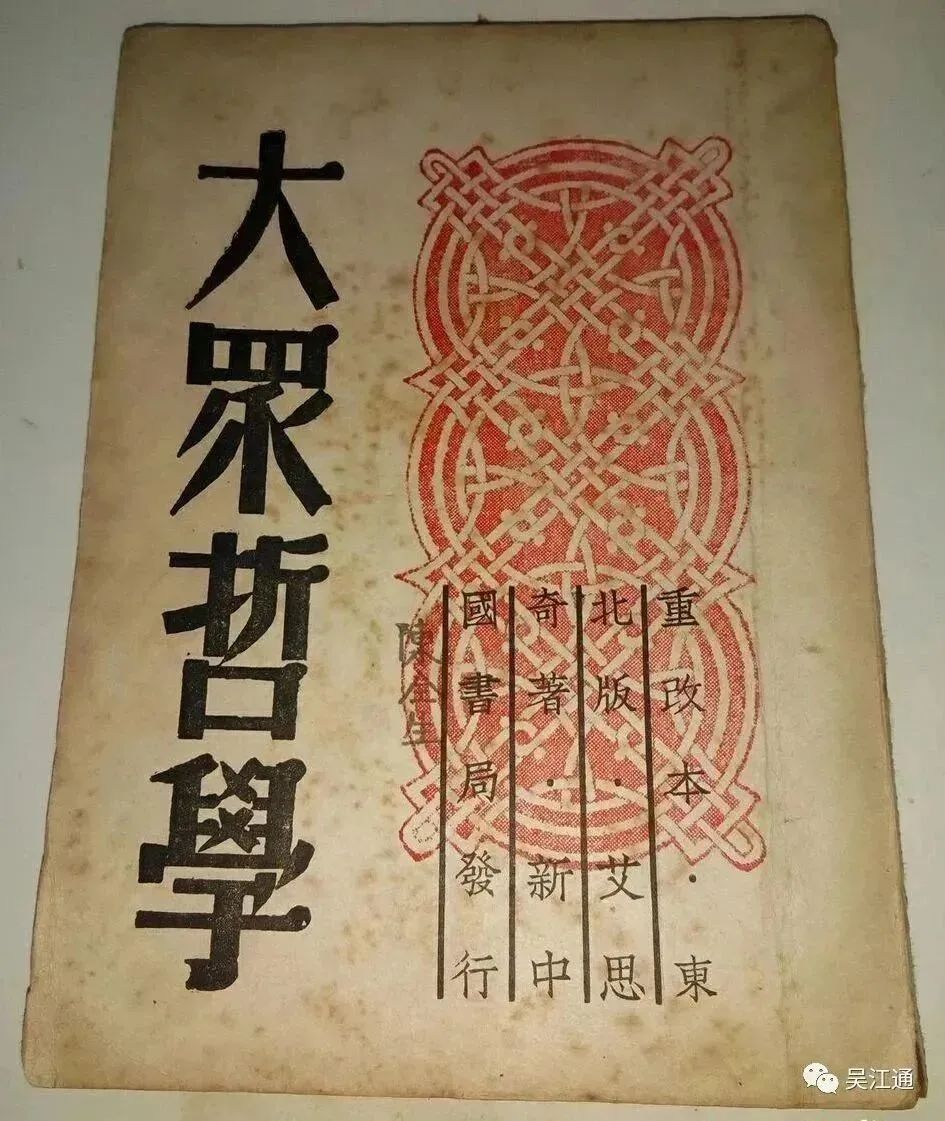 大眾哲學
重改本·東
北版·艾思
奇著·新中
國書局發行
陳全生
吴江通